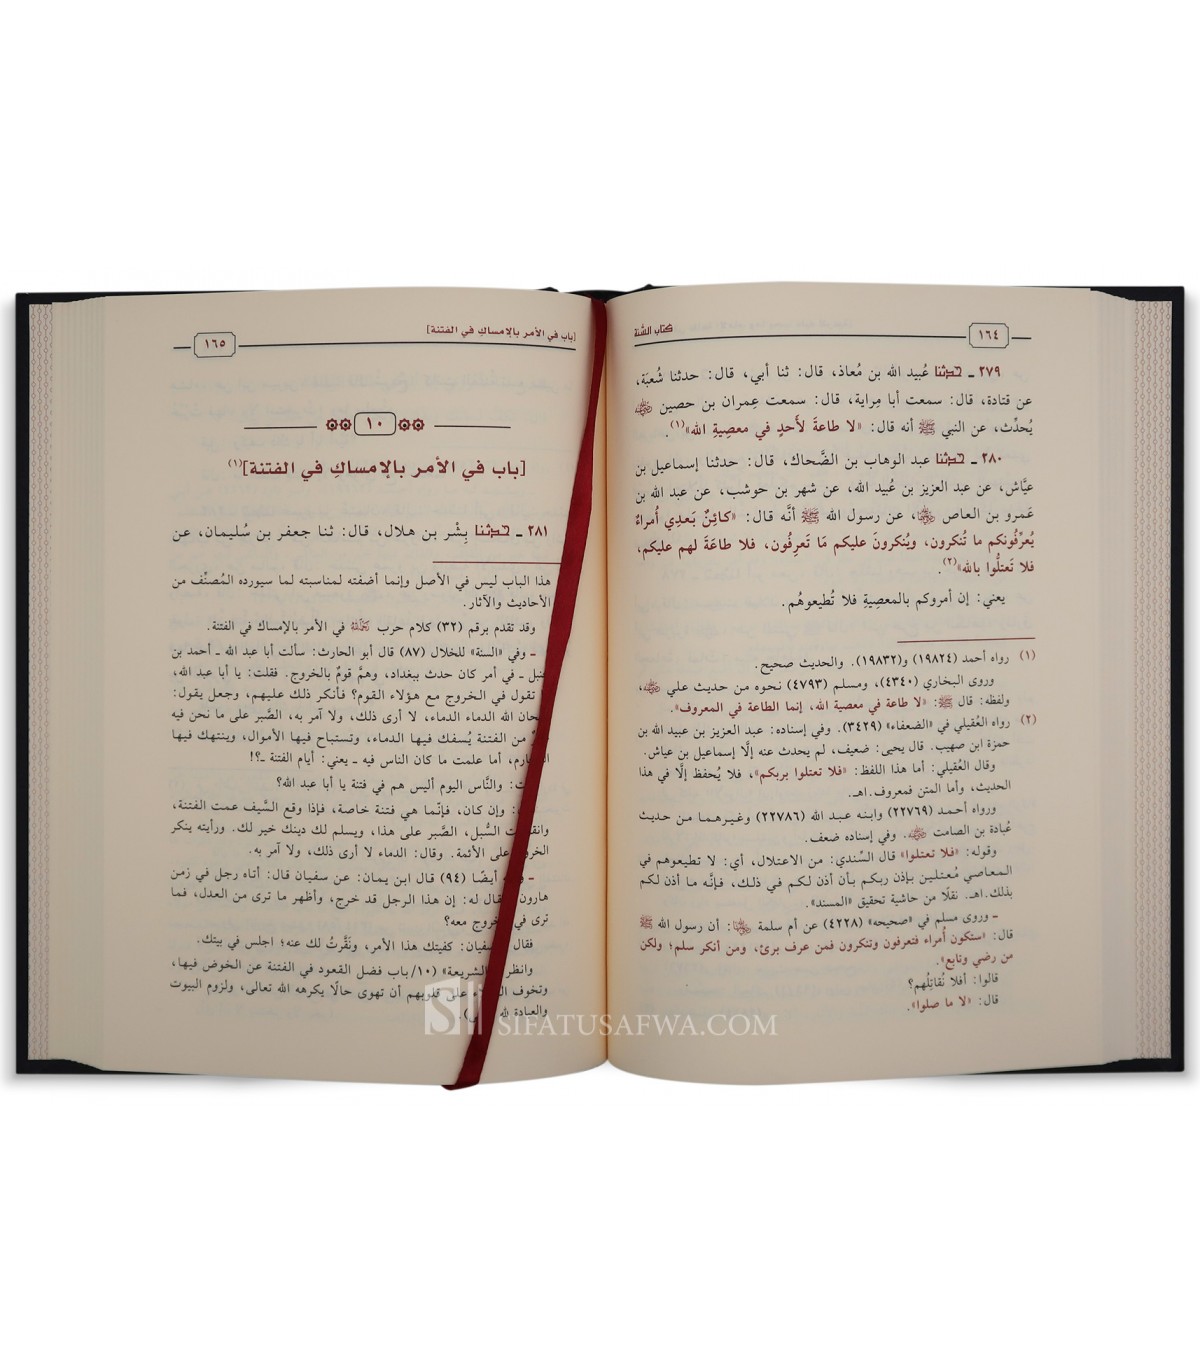 ١٦٤
كتاب السُّنة
٢٧٩ ـ حدثنا عُبيد الله بن مُعاذ، قال: ثنا أبي، قال: حدثنا شُعبَة،
عن قتادة، قال: سمعت أبا مِراية، قال: سمعت عِمران بن حصين
يُحدِّث، عن النبي ﷺ أنه قال: «لا طاعةَ لأَحدٍ في معصِيةِ الله»(١).
٢٨٠ ـ حدثنا عبد الوهاب بن الضَّحاك، قال: حدثنا إسماعيل بن
عيَّاش، عن عبد العزيز بن عُبيد الله، عن شهر بن حوشب، عن عبد الله بن
عَمرو بن العاص، عن رسول الله ﷺ أنَّه قال: «كائِنٌ بَعدِي أُمراءُ
يُعرِّفُونكم ما تُنكرون، ويُنكرونَ عليكم مَا تَعرِفُون، فلا طاعَةَ لهم عليكم،
فلا تَعتلُّوا بالله»(٢).
يعني: إن أمروكم بالمعصِيةِ فلا تُطيعوهُم.
(١) رواه أحمد (١٩٨٢٤) و(١٩٨٣٢). والحديث صحيح.
وروى البخاري (٤٣٤٠)، ومسلم (٤٧٩٣) نحوه من حديث علي ،
ولفظه: قال ﷺ: «لا طاعة في معصية الله، إنما الطاعة في المعروف».
(٢) رواه العُقيلي في «الضعفاء» (٣٤٢٩). وفي إسناده: عبد العزيز بن عبيد الله بن
حمزة ابن صهيب. قال يحيى: ضعيف، لم يحدث عنه إلَّا إسماعيل بن عياش.
وقال العُقيلي: أما هذا اللفظ: «فلا تعتلوا بربكم»، فلا يُحفظ إلَّا في هذا
الحديث، وأما المتن فمعروف. اهـ.
ورواه أحمد (٢٢٧٦٩) وابنه عبد الله (٢٢٧٨٦) وغيرهما من حديث
عُبادة بن الصامت . وفي إسناده ضعف.
وقوله: «فلا تعتلوا» قال السِّندي: من الاعتلال، أي: لا تطيعوهم في
المعاصي مُعتلين بإذن ربكم بأن أذن لكم في ذلك، فإنَّه ما أذن لكم
بذلك. اهـ. نقلًا من حاشية تحقيق «المسند».
ـ وروى مسلم في «صحيحه» (٤٢٢٨) عن أم سلمة : أن رسول الله ﷺ
قال: «ستكون أُمراء فتعرفون وتنكرون فمن عرف برئ، ومن أنكر سلم؛ ولكن
من رضي وتابع».
قالوا: أفلا نُقاتِلُهم؟
قال: «لا ما صلوا».
[باب في الأمر بالإمساكِ في الفتنة]
١٦٥
١٠
[باب في الأمر بالإمساكِ في الفتنة](١)
٢٨١ ـ حدثنا بِشْر بن هلال، قال: ثنا جعفر بن سُليمان، عن
هذا الباب ليس في الأصل وإنما أضفته لمناسبته لما سيورده المُصنِّف من
الأحاديث والآثار.
وقد تقدم برقم (٣٢) كلام حرب في الأمر بالإمساك في الفتنة.
ـ وفي «السنة» للخلال (٨٧) قال أبو الحارث: سألت أبا عبد الله ـ أحمد بن
ـ في أمر كان حدث ببغداد، وهمَّ قومٌ بالخروج. فقلت: يا أبا عبد الله،
تقول في الخروج مع هؤلاء القوم؟ فأنكر ذلك عليهم، وجعل يقول:
الله الدماء الدماء، لا أرى ذلك، ولا آمر به، الصَّبر على ما نحن فيه
من الفتنة يُسفك فيها الدماء، وتستباح فيها الأموال، وينتهك فيها
أما علمت ما كان الناس فيه ـ يعني: أيام الفتنة ـ؟!
والنَّاس اليوم أليس هم في فتنة يا أبا عبد الله؟
وإن كان، فإنَّما هي فتنة خاصة، فإذا وقع السَّيف عمت الفتنة،
السُّبل، الصَّبر على هذا، ويسلم لك دينك خير لك. ورأيته ينكر
على الأئمة. وقال: الدماء لا أرى ذلك، ولا آمر به.
ـ أيضًا (٩٤) قال ابن يمان: عن سفيان قال: أتاه رجل في زمن
هارون قال له: إن هذا الرجل قد خرج، وأظهر ما ترى من العدل، فما
ترى في معه؟
فقال سفيان: كفيتك هذا الأمر، ونَقَّرتُ لك عنه؛ اجلس في بيتك.
وانظر «الشريعة» (١٠/ باب فضل القعود في الفتنة عن الخوض فيها،
وتخوف على قلوبهم أن تهوى حالًا يكرهه الله تعالى، ولزوم البيوت
والعبادة لله
SIFATUSAFWA.COM